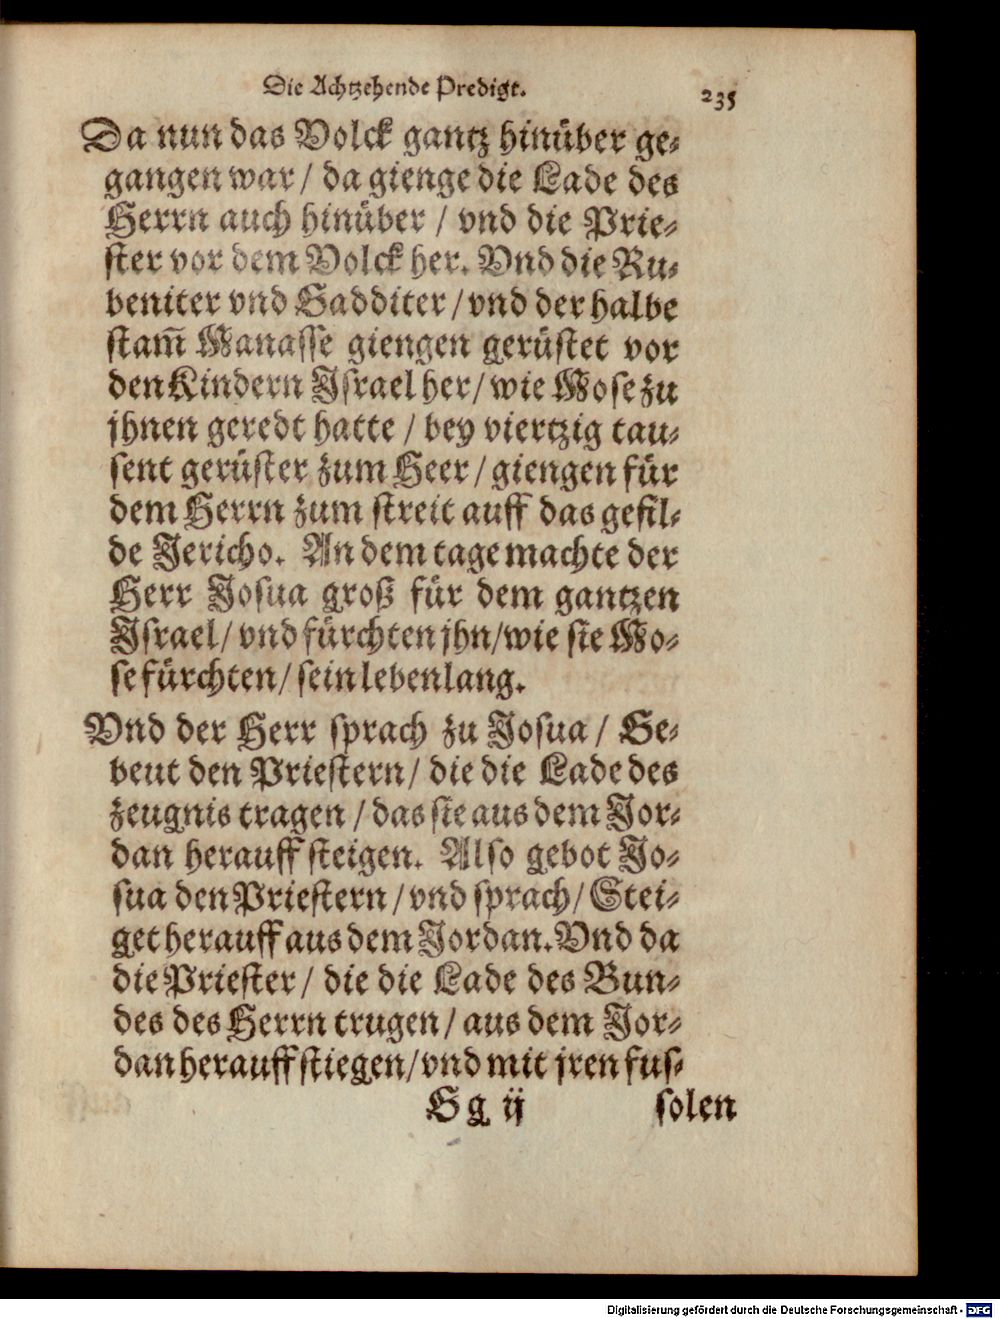 Die Achtzehende Predigt.
235
Da nun das Volck gantz hinüber ge-
gangen war / da gienge die Lade des
Herrn auch hinüber / vnd die Prie-
ster vor dem Volck her. Vnd die Ru-
beniter vnd Gadditer / vnd der halbe
stam̃ Manasse giengen gerüstet vor
den Kindern Israel her / wie Mose zu
jhnen geredt hatte / bey viertzig tau-
sent gerüster zum Heer / giengen für
dem Herrn zum streit auff das gefil-
de Jericho. An dem tage machte der
Herr Josua groß für dem gantzen
Israel / vnd fürchten jhn / wie sie Mo-
se fürchten / sein lebenlang.
Vnd der Herr sprach zu Josua / Ge-
beut den Priestern / die die Lade des
zeugnis tragen / das sie aus dem Jor-
dan herauff steigen. Also gebot Jo-
sua den Priestern / vnd sprach / Stei-
get herauff aus dem Jordan. Vnd da
die Priester / die die Lade des Bun-
des des Herrn trugen / aus dem Jor-
dan herauff stiegen / vnd mit jren fus-
Gg ij solen
Digitalisierung gefördert durch die Deutsche Forschungsgemeinschaft - DFG